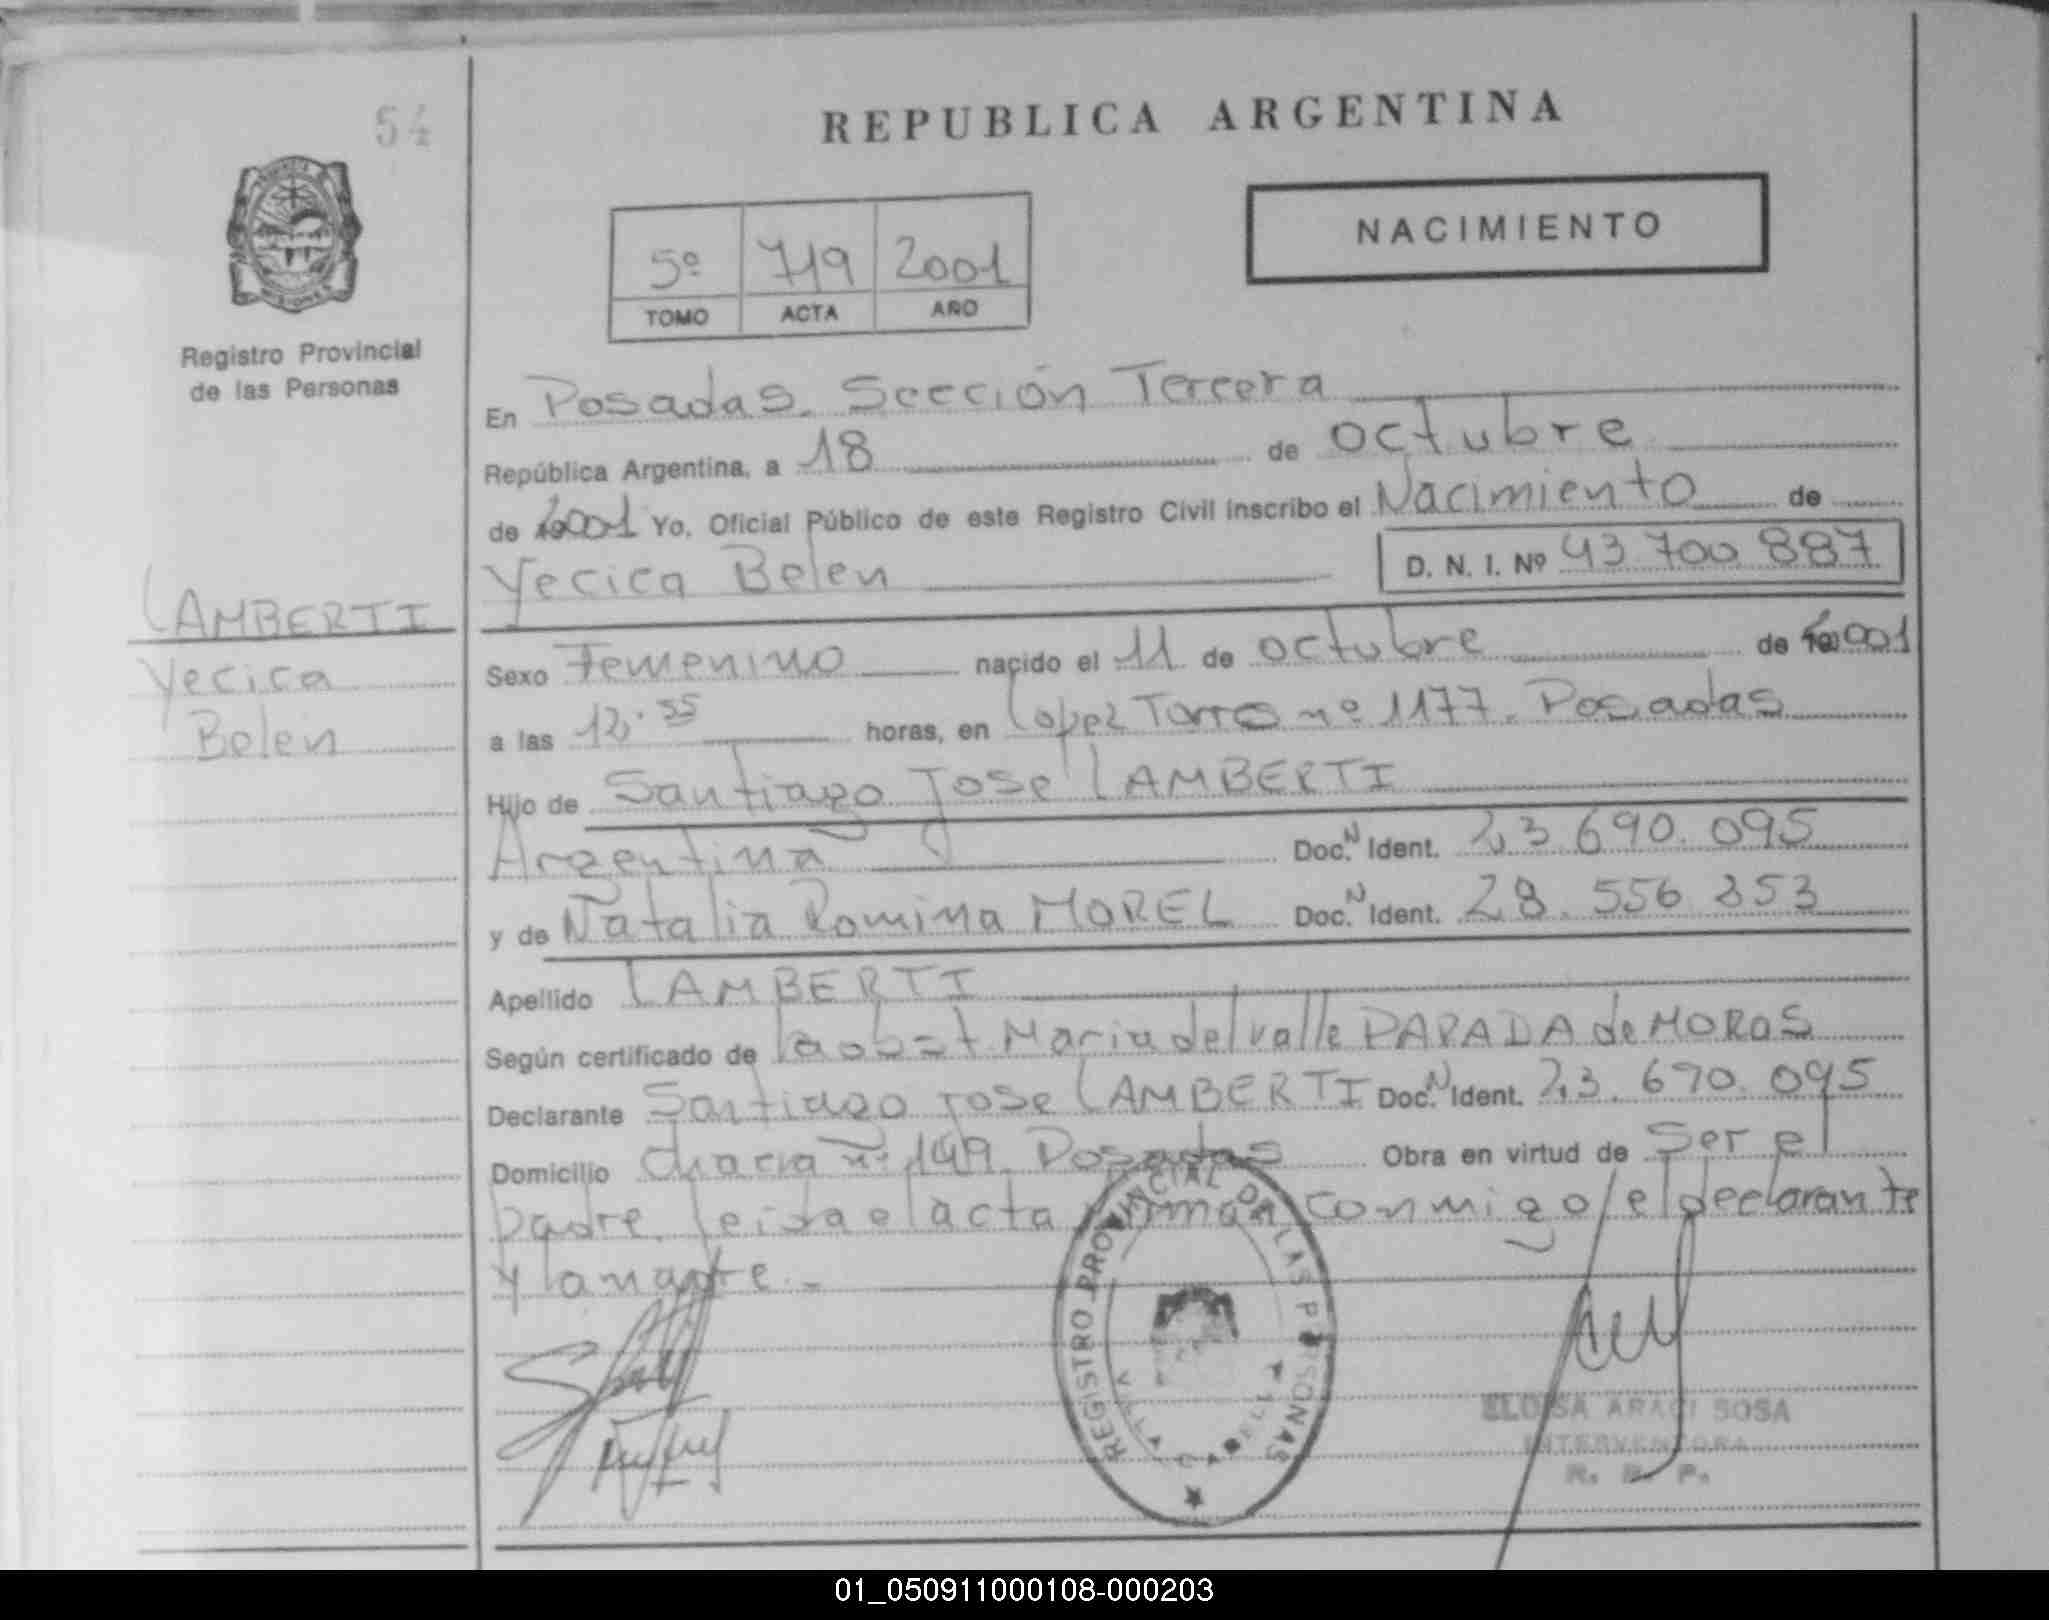 54
REPUBLICA ARGENTINA
NACIMIENTO
5º 719 2001
TOMO ACTA AÑO
Registro Provincial
de las Personas
En Posadas. Sección Tercera
República Argentina, a 18 de octubre
de 2001 Yo, Oficial Público de este Registro Civil inscribo el Nacimiento de
Yecica Belen D. N. I. Nº 43 700 887
LAMBERTI
Yecica
Belen
Sexo Femenino nacido el 11 de octubre de 2001
a las 12.55 horas, en Lopez Torres nº 1177. Posadas
Hijo de Santiago Jose LAMBERTI
Argentina Doc. N Ident. 23 690. 095
y de Natalia Romina MOREL Doc. N Ident. 28. 556 353
Apellido LAMBERTI
Según certificado de la obst Maria del valle PARADA de MORAS
Declarante Santiago Jose LAMBERTI Doc. N Ident. 23. 690. 095
Domicilio chacra nº 149. Posadas Obra en virtud de Ser el
padre. leida el acta firman conmigo el declarante
y la madre. -
REGISTRO PROVINCIAL DE LAS PERSONAS
ELOISA ARACI SOSA
INTERVENTORA
R. P. P.
01_050911000108-000203